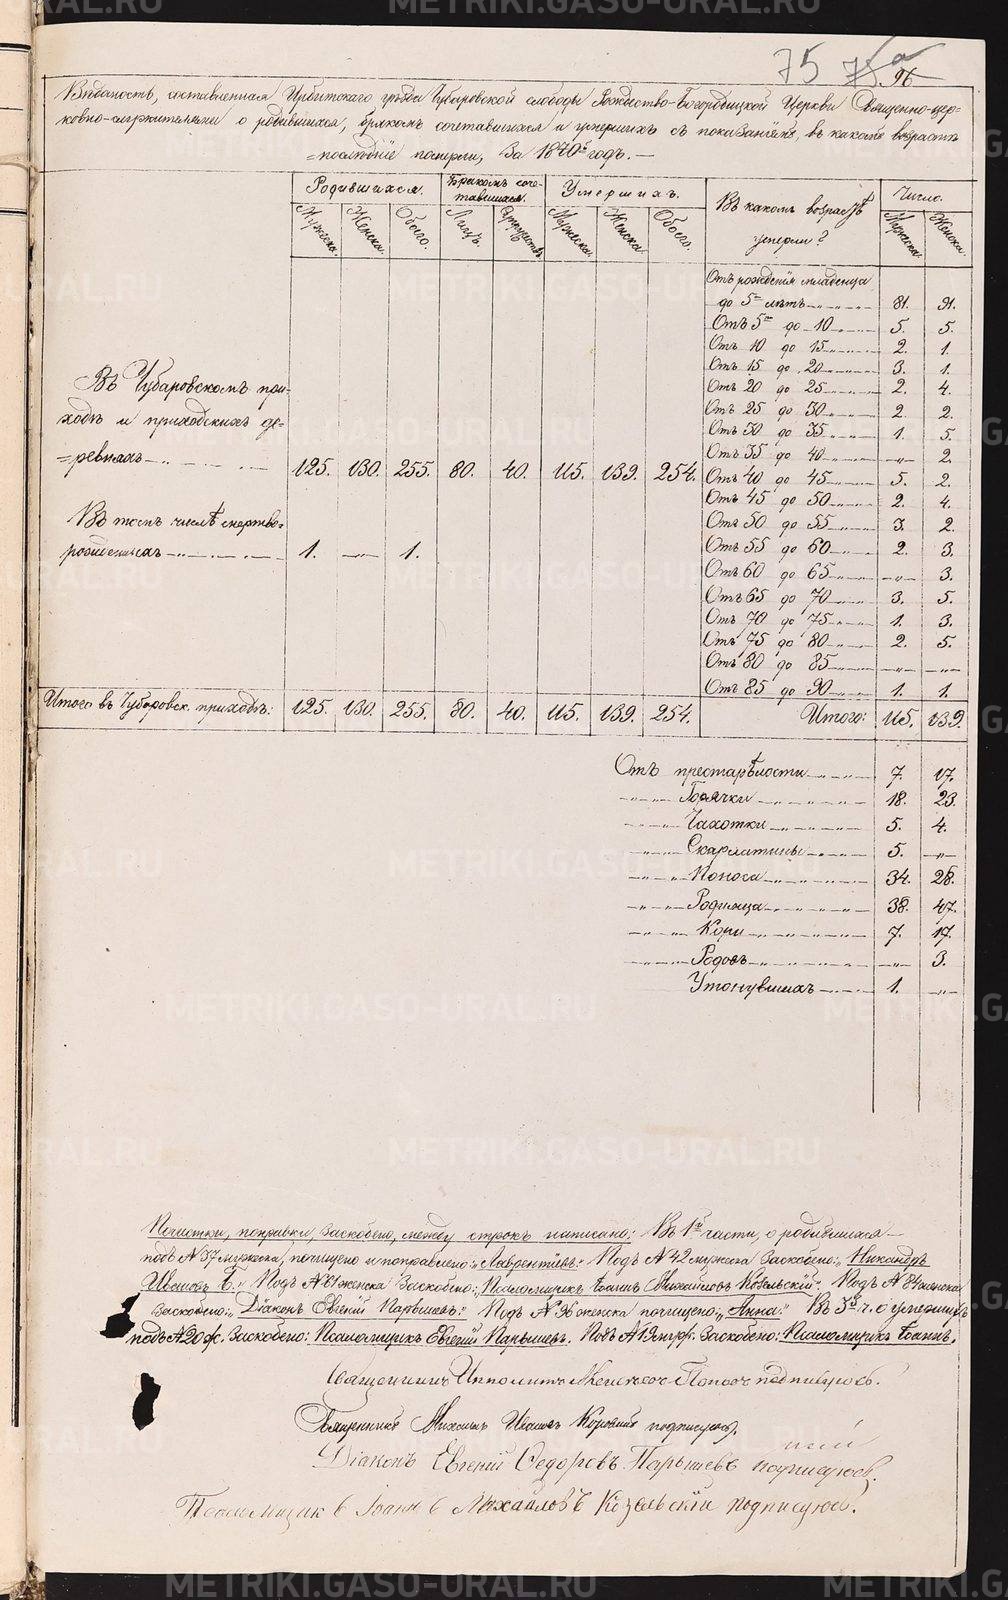 75 75а 96
Вѣдомость, составленная Ирбитскаго уѣзда Чубаровской слободы Рождество-Богородицкой Церкви Священно-цер-
ковно-служителями о родившихся, бракомъ сочетавшихся и умершихъ съ показанiемъ, въ какомъ возрастѣ
=послѣднiе померли, за 1870й годъ. —
Родившихся. Бракомъ соче- Умершихъ. Въ какомъ возрастѣ Число.
тавшихся. умерли?
Мужеска. Женска. Обоего. Лицъ. Супружествъ. Мужеска. Женска. Обоего. Мужеска. Женска.
Отъ рожденiя младенца
до 5ти лѣтъ 81. 91.
Отъ 5ти до 10 5. 5.
Отъ 10 до 15 2. 1.
Отъ 15 до 20 3. 1.
Отъ 20 до 25 2. 4.
Отъ 25 до 30 2. 2.
Отъ 30 до 35 1. 5.
Отъ 35 до 40 —„— 2.
Отъ 40 до 45 5. 2.
Отъ 45 до 50 2. 4.
Отъ 50 до 55 3. 2.
Отъ 55 до 60 2. 3.
Отъ 60 до 65 —„— 3.
Отъ 65 до 70 3. 5.
Отъ 70 до 75 1. 3.
Отъ 75 до 80 2. 5.
Отъ 80 до 85 —„— —„—
Отъ 85 до 90 1. 1.
Въ Чубаровскомъ при-
ходѣ и приходскихъ де-
=ревняхъ 125. 130. 255. 80. 40. 115. 139. 254.
Въ томъ числѣ мертво-
рожденныхъ 1. —„— 1.
Итого въ Чубаровск. приходѣ: 125. 130. 255. 80. 40. 115. 139. 254. Итого: 115. 139.
Отъ престарѣлости 7. 17.
Горячки 18. 23.
Чахотки 5. 4.
Скарлатины 5. —„—
Поноса 34. 28.
Родимца 38. 47.
Кори 7. 17.
Родовъ —„— 3.
Утонувшихъ 1. —„—
Почистки, поправки, заскоблено, между строкъ написано: Въ 1й части, о родившихся—
подъ № 37 мужеска, почищено и поправлено: „Лаврентiевъ." Подъ № 42 мужеска заскоблено: „Никандръ
Ивановъ Б." Подъ № 81 женска заскоблено: „Псаломщикъ Iоаннъ Михайловъ Козельскiй" Подъ № 84 женска
заскоблено: „Дiаконъ Евгенiй Парышевъ." Подъ № женска почищено: „Анна." Въ 3й ч. о умершихъ
подъ № 20 ж. заскоблено: Псаломщикъ Евгенiй Парышевъ. заскоблено: Псаломщикъ Iоаннъ.
Священникъ Ипполитъ Попов подписуюсь.
Священникъ Михаилъ Ивановъ подписуюсь.
Дiаконъ Евгенiй Ѳедоровъ Парышевъ подписуюсь.
Псаломщикъ Iоаннъ Михайловъ Козельскiй подписуюсь.
METRIKI.GASO-URAL.RU